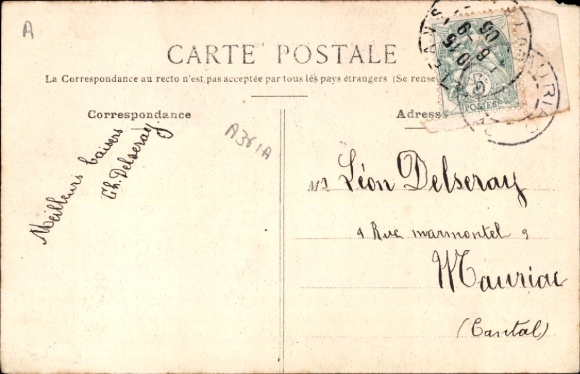 A
CARTE POSTALE
La Correspondance au recto n'est pas acceptée par tous lès pays étrangers (Se rense
Correspondance
Adress
Meilleurs baisers
Ch. Delseray
A361A
Mr Léon Delseray
9 Rue marmontel 9
Mauriac
(Cantal)
POSTES